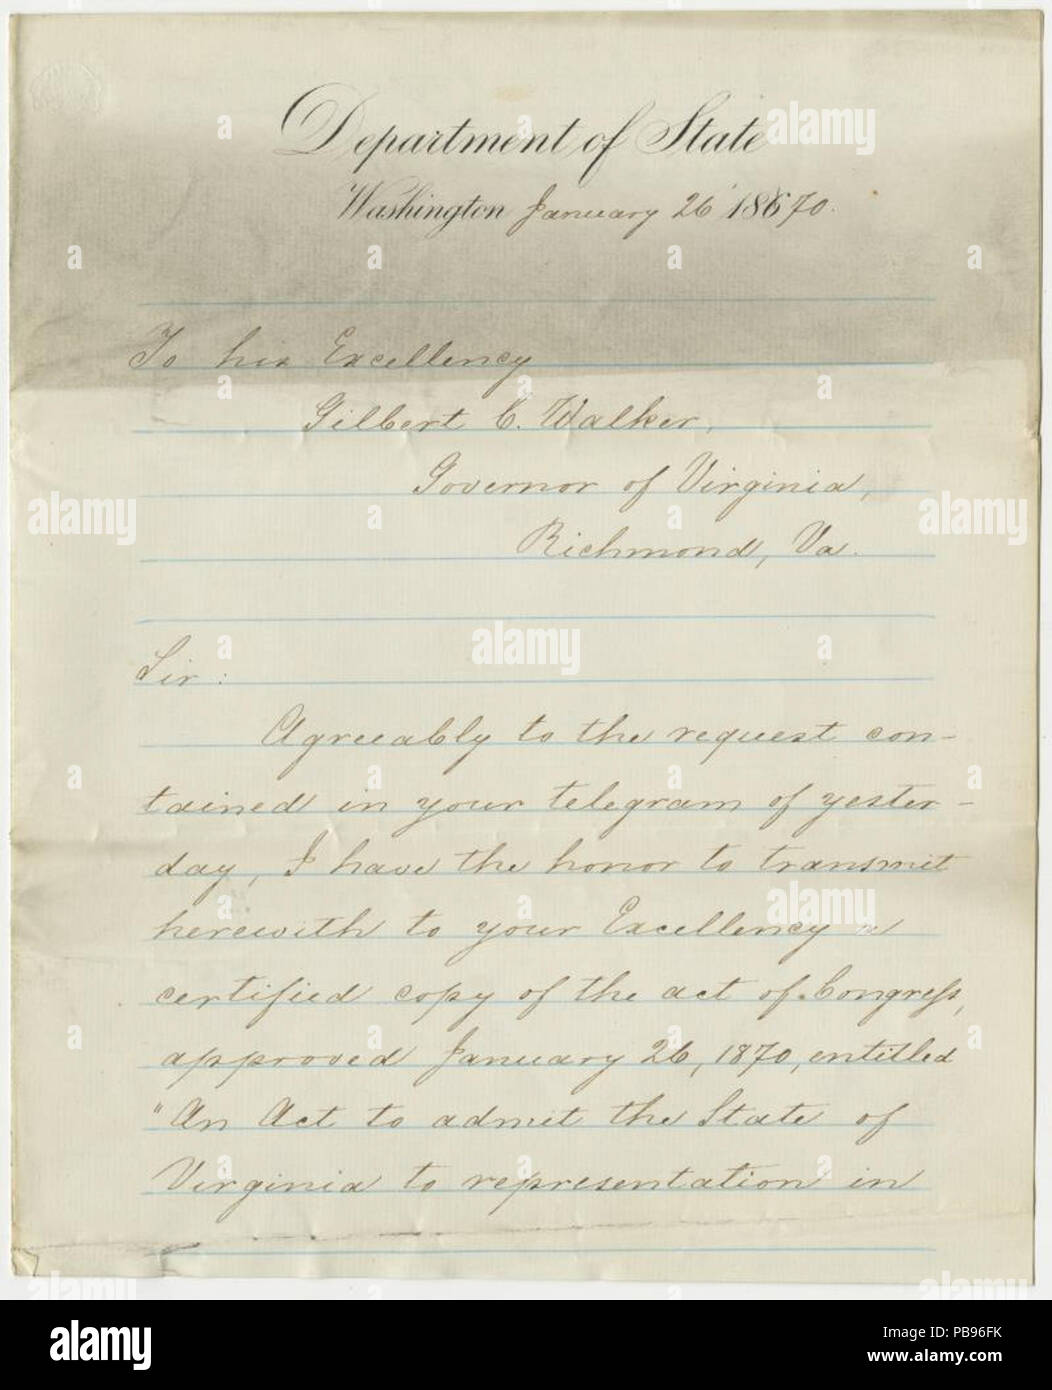 Department of State
Washington January 26' 18670.
To his Excellency
Gilbert C. Walker,
Governor of Virginia,
Richmond, Va.
Sir:
Agreeably to the request con-
tained in your telegram of yester-
day, I have the honor to transmit
herewith to your Excellency a
certified copy of the act of Congress,
approved January 26, 1870, entitled
"An Act to admit the State of
Virginia to representation in
alamy
alamy
alamy
alamy
alamy
alamy
alamy
alamy
a
a
a
a
a
a
a
a
a
a
alamy
Image ID: PB96FK
www.alamy.com